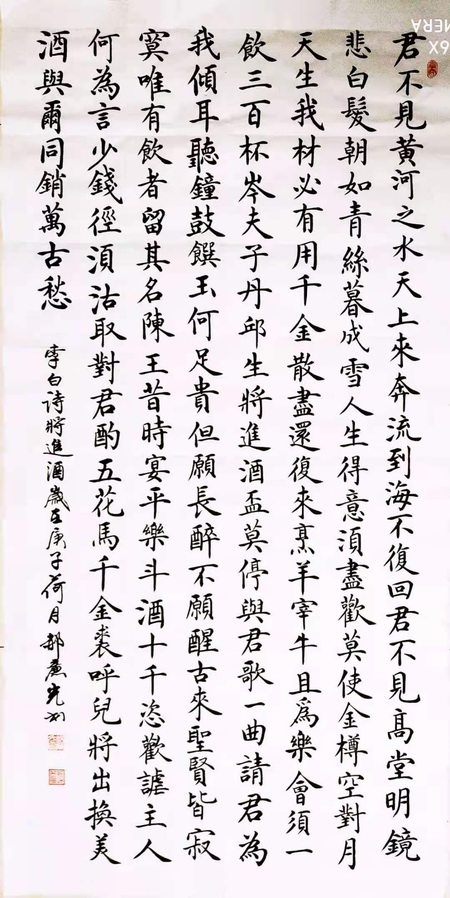 君不見黃河之水天上來奔流到海不復回君不見高堂明鏡
悲白髮朝如青絲暮成雪人生得意須盡歡莫使金樽空對月
天生我材必有用千金散盡還復來烹羊宰牛且爲樂會須一
飲三百杯岑夫子丹邱生將進酒盃莫停與君歌一曲請君為
我傾耳聽鐘鼓饌玉何足貴但願長醉不願醒古來聖賢皆寂
寞唯有飲者留其名陳王昔時宴平樂斗酒十千恣歡謔主人
何為言少錢徑須沽取對君酌五花馬千金裘呼兒將出換美
酒與爾同銷萬古愁
李白诗將進酒歲在庚子荷月郝